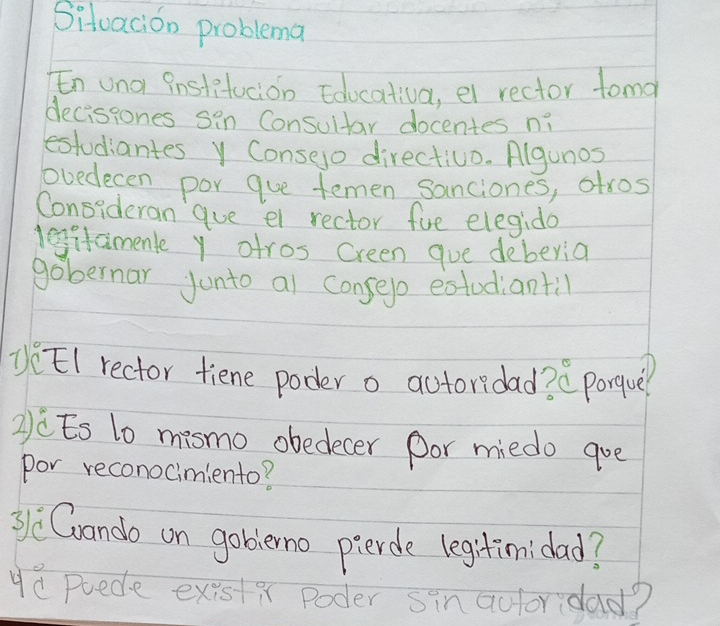 Situación problema
En una institución Educativa, el rector toma
decisiones sin Consultar docentes ni
estudiantes y Consejo directivo. Algunos
obedecen por que temen sanciones, otros
Consideran que el rector fue elegido
legitamente y otros Creen que deberia
gobernar junto al consejo estudiantil
1)¿El rector tiene poder o autoridad?¿porqué?
2)¿Es lo mismo obedecer por miedo que
por reconocimiento?
3)¿Cuando un gobierno pierde legitimidad?
4¿Puede existir Poder sin autoridad?